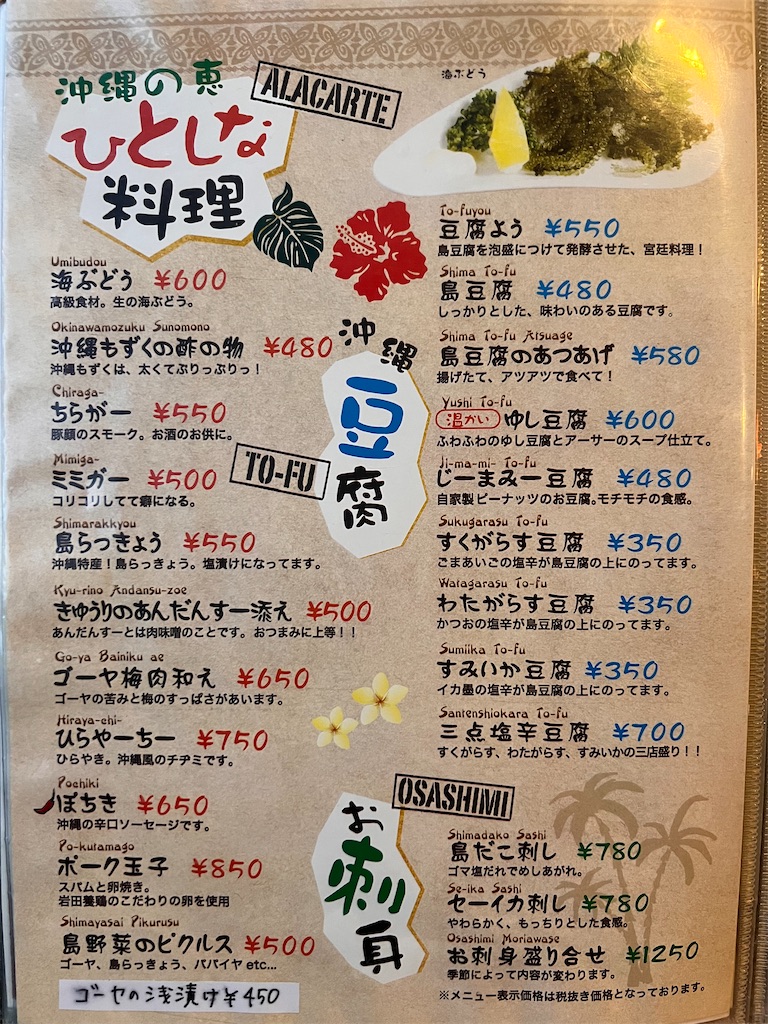 沖縄の恵
ひとしな
料理
ALACARTE
海ぶどう
Umibudou
海ぶどう ¥600
高級食材。生の海ぶどう。
Okinawamozuku Sunomono
沖縄もずくの酢の物 ¥480
沖縄もずくは、太くてぷりっぷりっ！
Chiraga-
ちらがー ¥550
豚顔のスモーク。お酒のお供に。
Mimiga-
ミミガー ¥500
コリコリしてて癖になる。
Shimarakkyou
島らっきょう ¥550
沖縄特産！島らっきょう。塩漬けになってます。
Kyu-rino Andansu-zoe
きゅうりのあんだんすー添え ¥500
あんだんすーとは肉味噌のことです。おつまみに上等！！
Go-ya Bainiku ae
ゴーヤ梅肉和え ¥650
ゴーヤの苦みと梅のすっぱさがあいます。
Hiraya-chi-
ひらやーちー ¥750
ひらやき。沖縄風のチヂミです。
Pochiki
ぽちき ¥650
沖縄の辛口ソーセージです。
Po-kutamago
ポーク玉子 ¥850
スパムと卵焼き。
岩田養鶏のこだわりの卵を使用
Shimayasai Pikurusu
島野菜のピクルス ¥500
ゴーヤ、島らっきょう、パパイヤ etc...
ゴーヤの浅漬け¥450
沖縄
豆腐
TO-FU
To-fuyou
豆腐よう ¥550
島豆腐を泡盛につけて発酵させた、宮廷料理！
Shima To-fu
島豆腐 ¥480
しっかりとした、味わいのある豆腐です。
Shima To-fu Atsuage
島豆腐のあつあげ ¥580
揚げたて、アツアツで食べて！
Yushi To-fu
温かい ゆし豆腐 ¥600
ふわふわのゆし豆腐とアーサーのスープ仕立て。
Ji-ma-mi- To-fu
じーまみー豆腐 ¥480
自家製ピーナッツのお豆腐。モチモチの食感。
Sukugarasu To-fu
すくがらす豆腐 ¥350
ごまあいごの塩辛が島豆腐の上にのってます。
Watagarasu To-fu
わたがらす豆腐 ¥350
かつおの塩辛が島豆腐の上にのってます。
Sumiika To-fu
すみいか豆腐 ¥350
イカ墨の塩辛が島豆腐の上にのってます。
Santenshiokara To-fu
三点塩辛豆腐 ¥700
すくがらす、わたがらす、すみいかの三店盛り！！
お刺身
OSASHIMI
Shimadako Sashi
島だこ刺し ¥780
ゴマ塩だれでめしあがれ。
Se-ika Sashi
セーイカ刺し ¥780
やわらかく、もっちりとした食感。
Osashimi Moriawase
お刺身盛り合せ ¥1250
季節によって内容が変わります。
※メニュー表示価格は税抜き価格となっております。